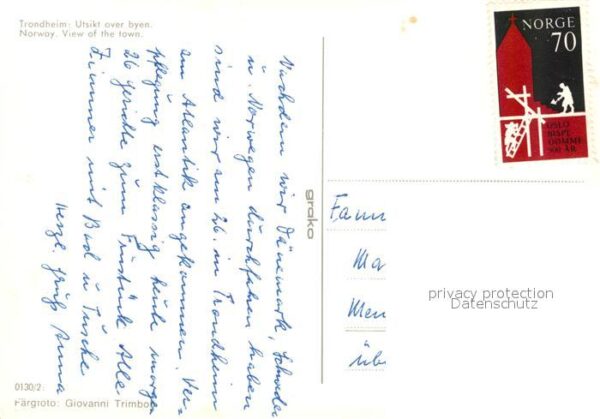 Trondheim: Utsikt over byen.
Norway. View of the town.
Nachdem wir Dänemark, Schwede
u. Norwegen durchfahren haben
sind wir am 26. in Trondheim
am Atlantik angekommen. Ver-
pflegung erstklassig heute morgen
26 gerichte zum Frühstück Alle
Zimmer mit Bad u Dusche
Herzl. Grüße Anna
0130/2
Färgfoto: Giovanni Trimboli
grako
NORGE
70
OSLO
BISPE
DØMME
900 ÅR
Fam
Ma
Men
üb
privacy protection
Datenschutz